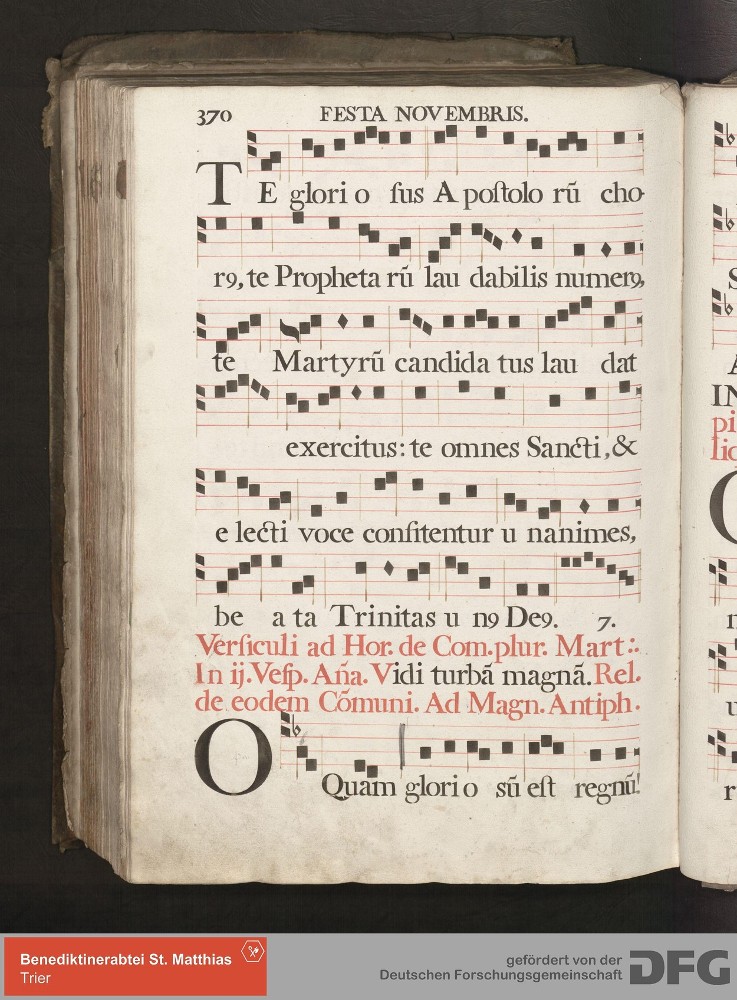 370 FESTA NOVEMBRIS.
TE glori o sus A postolo rũ cho-
r9, te Propheta rũ lau dabilis numer9,
te Martyrũ candida tus lau dat
exercitus: te omnes Sancti, &
e lecti voce confitentur u nanimes,
be a ta Trinitas u n9 De9. 7.
Versiculi ad Hor. de Com. plur. Mart:.
In ij. Vesp. Aña. Vidi turbã magnã. Rel.
de eodem Cõmuni. Ad Magn. Antiph.
O Quam glori o sũ est regnũ!
S
A
IN
pi
lic
Benediktinerabtei St. Matthias
Trier
gefördert von der
Deutschen Forschungsgemeinschaft
DFG